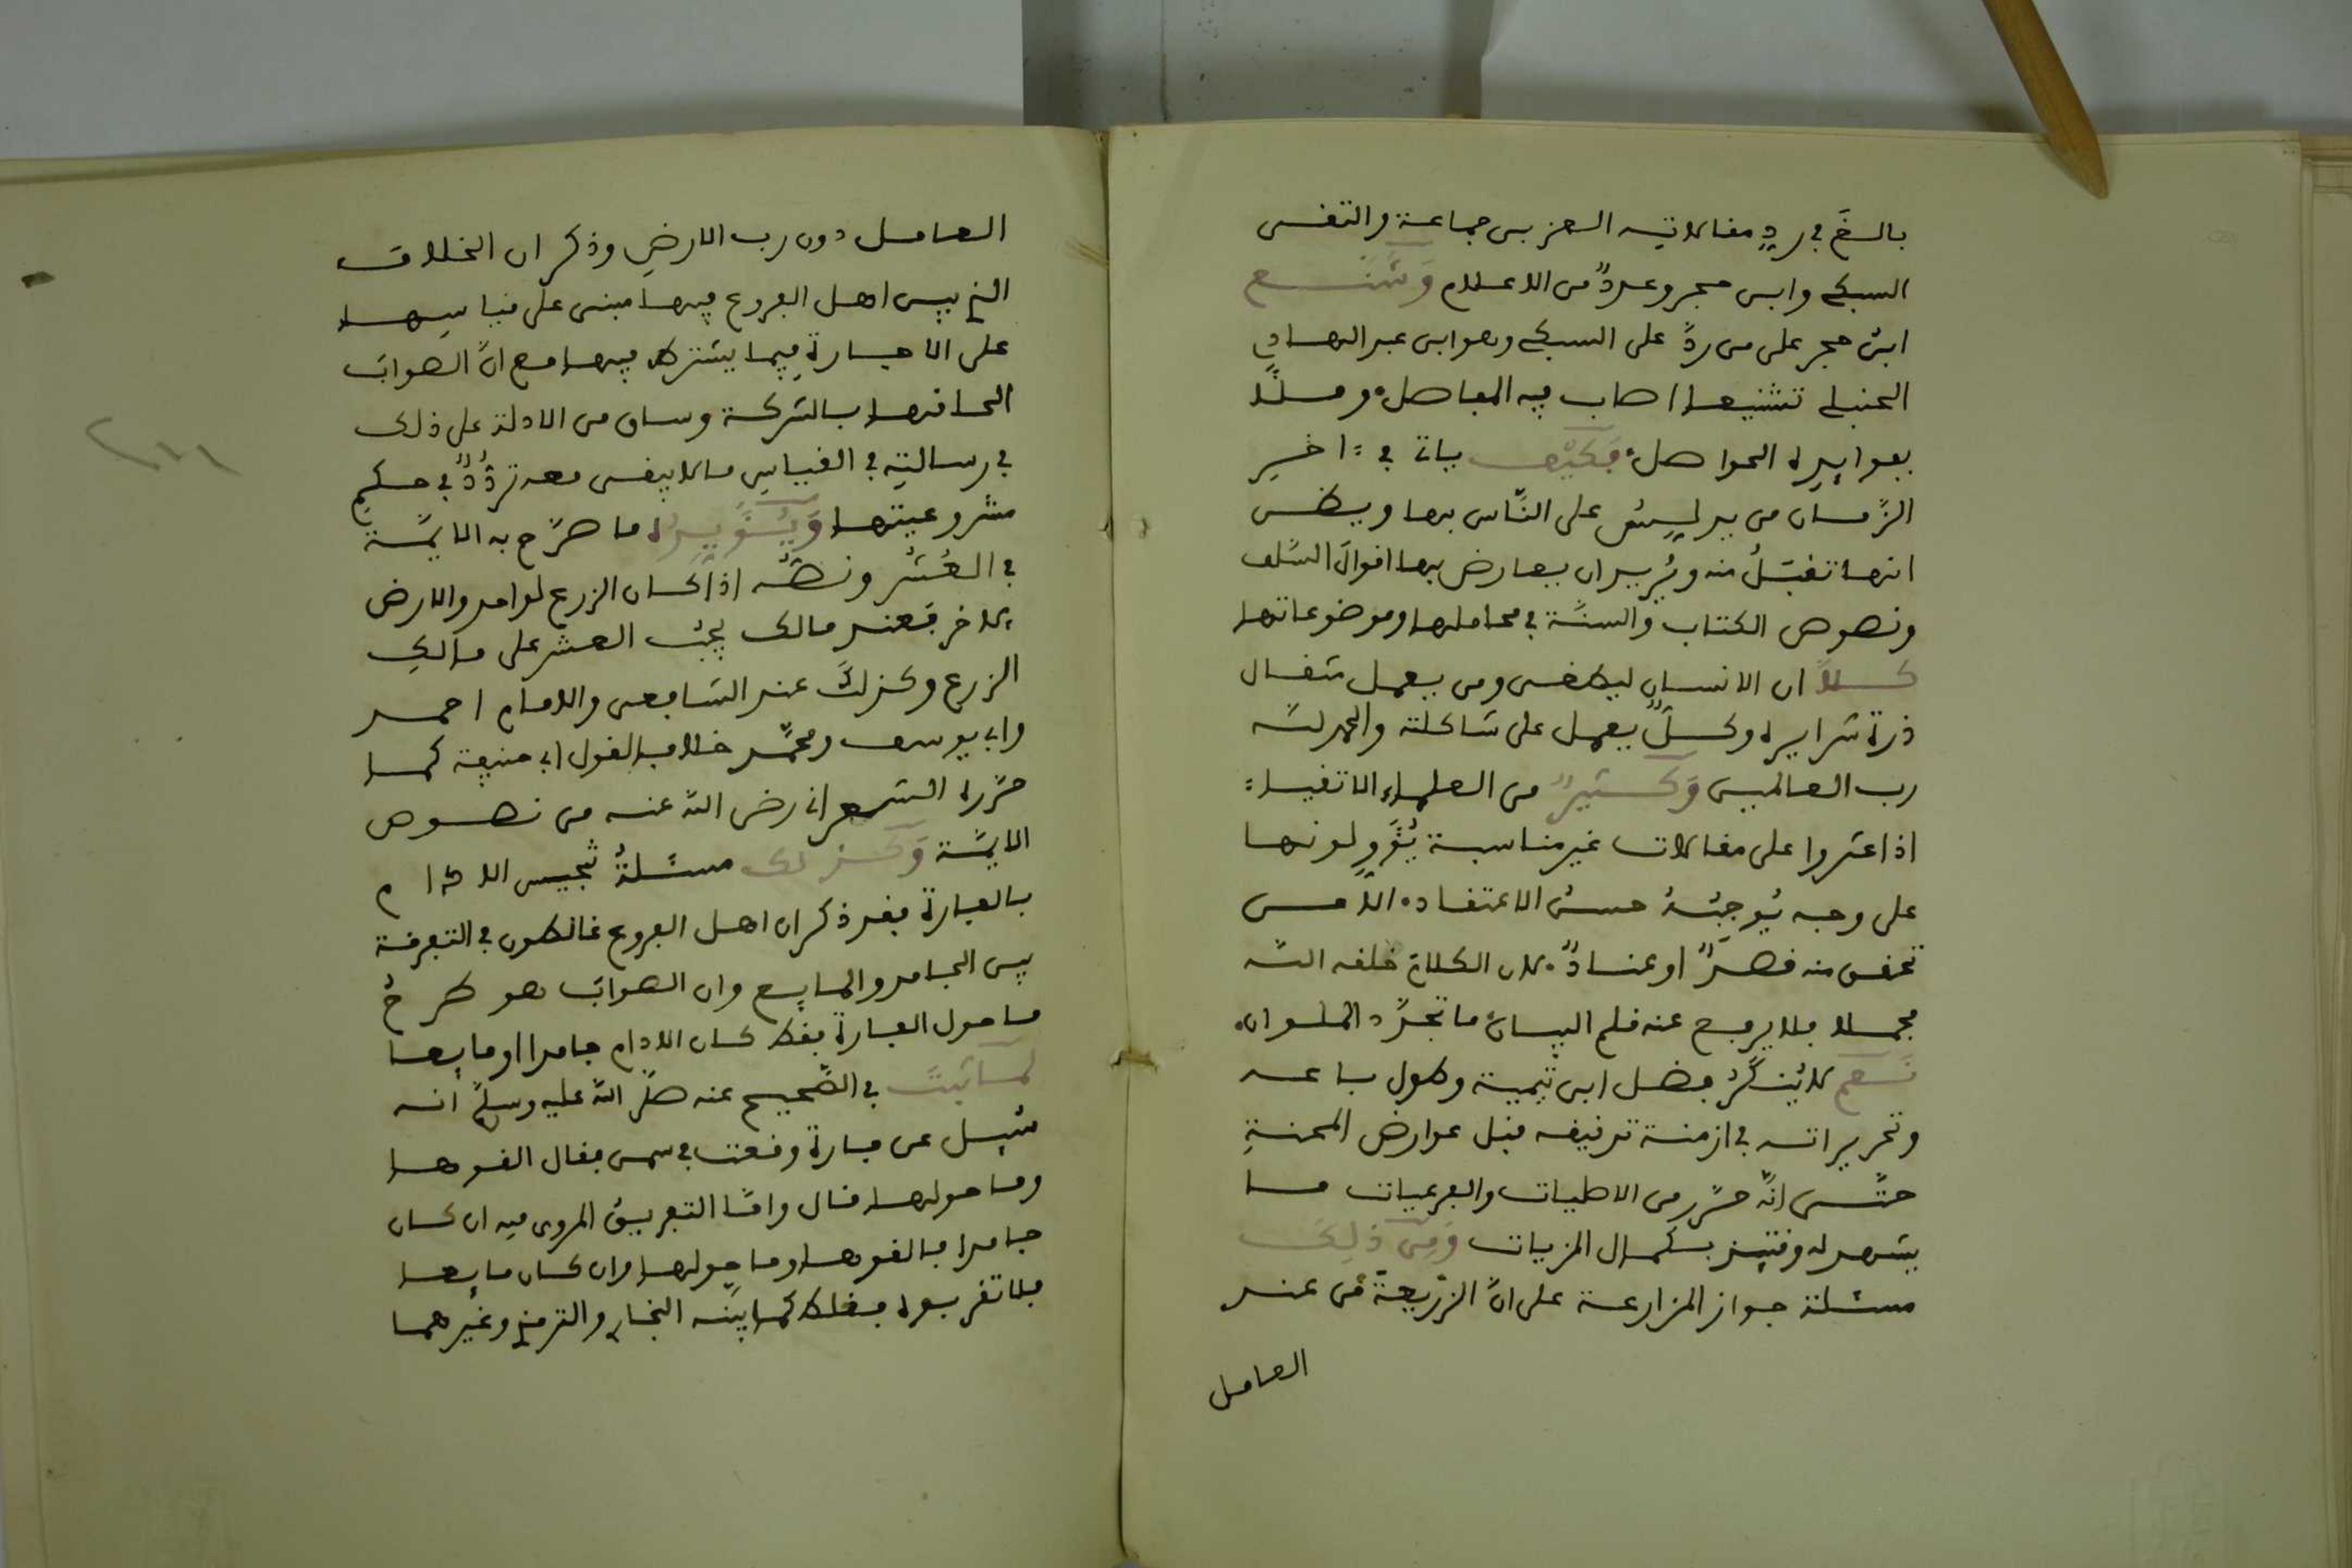 بالغ في رد مقالاته العز بن جماعة والتقى
السبكي وابن حجر وعدد من الاعلام وشنع
ابن حجر على من رد على السبكي وهو ابن عبد الهادي
الحنبلي تشنيعا اصاب فيه المفاصل وملأ
بفوايده الحواصل فكيف ياتي في اخر
الزمان من يدلس على الناس بها ويظن
انها تقبل منه ويريد ان يعارض بها اقوال السلف
ونصوص الكتاب والسنة في محاملها وموضوعاتها
كلا ان الانسان ليطغى ومن يعمل مثقال
ذرة شرا يره وكل يعمل على شاكلته والحمد لله
رب العالمين وكثير من العلماء الاتقياء
اذا عثروا على مقالات غير مناسبة يؤولونها
على وجه يوجبه حسن الاعتقاد الا من
تحقق منه قصد او عناد لان الكلام خلقه الله
مجملا فلا يرفع عنه قلم البيان ما تجدد الملوان
نعم لا ينكر فضل ابن تيمية وطول باعه
وتحريراته في ازمنة توفيقه قبل عوارض المحنة
حتى انه حرر من الاصليات والفرعيات ما
يشهد له وقتيذ بكمال المزيات ومن ذلك
مسئلة جواز المزارعة على ان الزريعة من عند
العامل
العامل دون رب الارض وذكر ان الخلاف
الذي بين اهل الفروع فيها مبنى على قياسها
على الاجارة فيما يشترط فيها مع ان الصواب
الحاقها بالشركة وساق من الادلة على ذلك
في رسالته في القياس ما لا يبقى معه تردد في حكم
مشروعيتها ويؤيده ما صرح به الايمة
في العشر ونصه اذا كان الزرع لواحد والارض
لاخر فعند مالك يجب العشر على مالك
الزرع وكذلك عند الشافعى والامام احمد
وابي يوسف ومحمد خلاف لقول ابي حنيفة كما
حرره الشعراني رضى الله عنه من نصوص
الايمة وكذلك مسئلة تنجيس الادام
بالفارة فقد ذكر ان اهل الفروع غالطون في التفرقة
بين الجامد والمايع وان الصواب هو طرح
ما حول الفارة فقط كان الادام جامدا او مايعا
لما ثبت في الصحيح عنه صلى الله عليه وسلم انه
سيل عن فارة وقعت في سمن فقال القوها
وما حولها قال واما التفريق المروى فيه ان كان
جامدا فالقوها وما حولها وان كان مايعا
فلا تقربوه فغلط كما بينه البخاري والترمذي وغيرهما